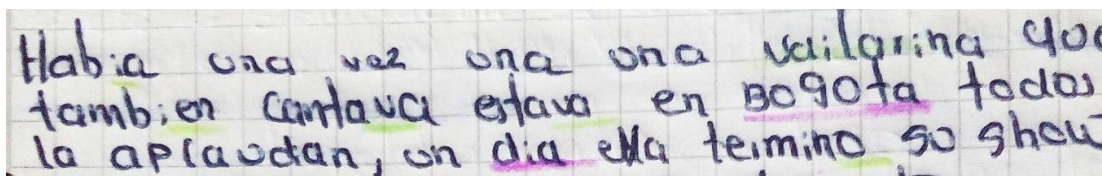 Habia una vez una una vailarina que
tambien cantava estava en Bogota todos
la aplaudan, un dia ella termino su show